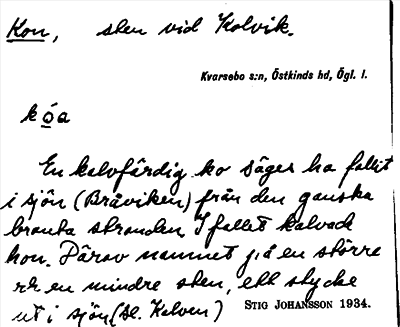 Kon, sten vid Kolvik.
Kvarsebo s:n, Östkinds hd, Ögl. l.
kóa
En kalvfärdig ko säges ha fallit
i sjön (Bråviken) från den ganska
branta stranden. I fallet kalvade
hon. Därav namnet på en större
och en mindre sten, ett stycke
ut i sjön (Se. Kalven)
STIG JOHANSSON 1934.